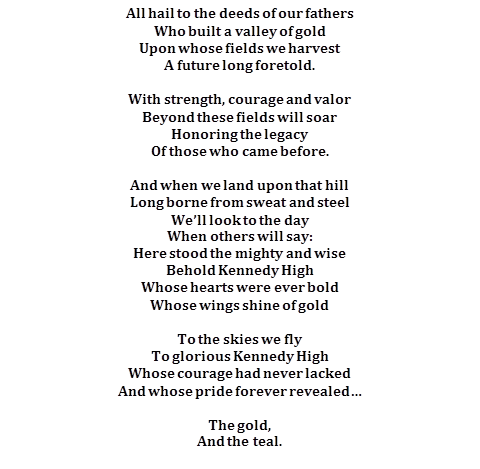 All hail to the deeds of our fathers
Who built a valley of gold
Upon whose fields we harvest
A future long foretold.

With strength, courage and valor
Beyond these fields will soar
Honoring the legacy
Of those who came before.

And when we land upon that hill
Long borne from sweat and steel
We'll look to the day
When others will say:
Here stood the mighty and wise
Behold Kennedy High
Whose hearts were ever bold
Whose wings shine of gold

To the skies we fly
To glorious Kennedy High
Whose courage had never lacked
And whose pride forever revealed…

The gold,
And the teal.